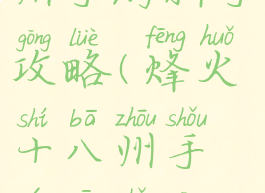 gōng lüè fēng huǒ
攻略(烽火
shí bā zhōu shǒu
十八州手